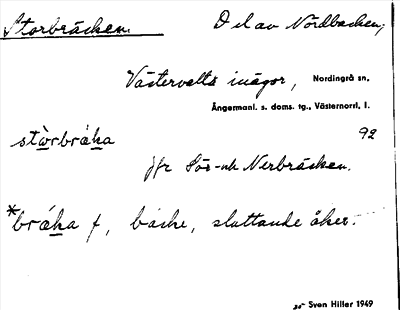 Storbräcken. Del av Nördbacken,
Västervalts inägor, Nordingrå sn,
Ångermanl. s. doms. tg., Västernorrl. l.
stòrbráka 92
jfr Sör- och Nerbräcken.
*bráka f, backe, sluttande åker.
Sven Hiller 1949